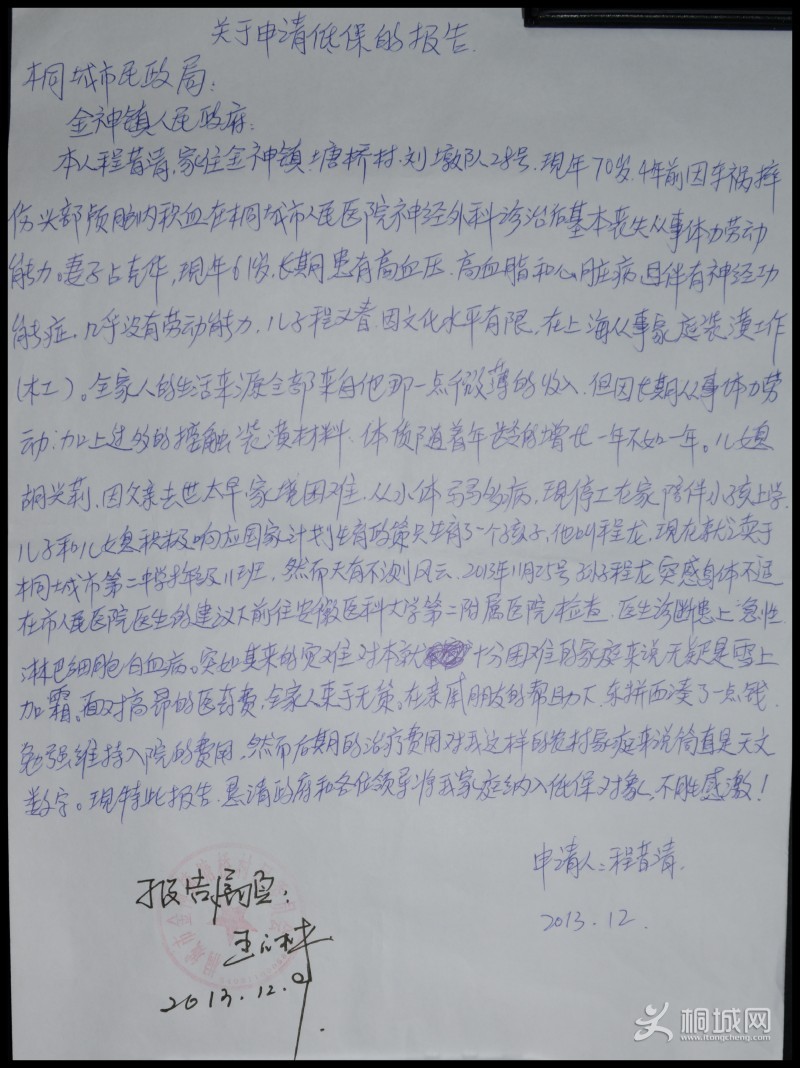 关于申请低保的报告.
桐城市民政局:
金神镇人民政府:
本人程昔清,家住金神镇塘桥村刘墩队28号.现年70岁.4年前因车祸摔
伤头部颅脑内积血在桐城市人民医院神经外科诊治后基本丧失从事体力劳动
能力。妻子占克华,现年61岁.长期患有高血压.高血脂和心脏病且伴有神经功
能症.几乎没有劳动能力.儿子程义春因文化水平有限.在上海从事家庭装潢工作
(木工)。全家人的生活来源全部来自他那一点微薄的收入.但因长期从事体力劳
动.加上过多的接触装潢材料.体质随着年龄的增长一年不如一年。儿媳
胡兴莉.因父亲去世太早.家境困难.从小体弱多病.现停工在家陪伴小孩上学.
儿子和儿媳积极响应国家计划生育政策只生育了一个孩子,他叫程龙,现在就读于
桐城市第二中学 年级11班.然而天有不测风云.2013年11月25号孙子程龙突感身体不适
在市人民医院医生的建议下前往安徽医科大学第二附属医院检查.医生诊断患上急性
淋巴细胞白血病。突如其来的灾难对本就十分困难的家庭来说无疑是雪上
加霜.面对高昂的医药费.全家人束手无策。在亲戚朋友的帮助下.东拼西凑了一点钱.
勉强维持入院的费用.然而后期的治疗费用对我这样的农村家庭来说简直是天文
数字。现特此报告.恳请政府和各位领导将我家庭纳入低保对象.不胜感激!
申请人:程昔清.
2013.12.
报告属实:
2013.12.9
桐城网
www.itongcheng.com